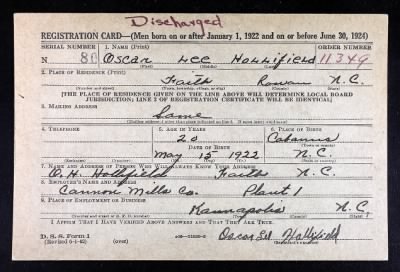 Discharged
REGISTRATION CARD—(Men born on or after January 1, 1922 and on or before June 30, 1924)
SERIAL NUMBER 1. NAME (Print) ORDER NUMBER
N 86 Oscar Lee Hollifield 11349
(First) (Middle) (Last)
2. PLACE OF RESIDENCE (Print)
Faith Rowan N.C.
(Number and street) (Town, township, village, or city) (County) (State)
[THE PLACE OF RESIDENCE GIVEN ON THE LINE ABOVE WILL DETERMINE LOCAL BOARD
JURISDICTION; LINE 2 OF REGISTRATION CERTIFICATE WILL BE IDENTICAL]
3. MAILING ADDRESS
Same
4. TELEPHONE 5. AGE IN YEARS 6. PLACE OF BIRTH
20 Cabarrus
DATE OF BIRTH
May 15 1922 N.C.
7. NAME AND ADDRESS OF PERSON WHO WILL ALWAYS KNOW YOUR ADDRESS
O. H. Hollifield Faith N.C.
8. EMPLOYER'S NAME AND ADDRESS
Cannon Mills Co. Plant 1
9. PLACE OF EMPLOYMENT OR BUSINESS
Kannapolis N.C.
(Number and street or R. F. D. number) (Town) (County) (State)
I AFFIRM THAT I HAVE VERIFIED ABOVE ANSWERS AND THAT THEY ARE TRUE.
D. S. S. Form 1
(Revised 6-1-42) (over) Oscar Lee Hollifield
(Registrant's signature)